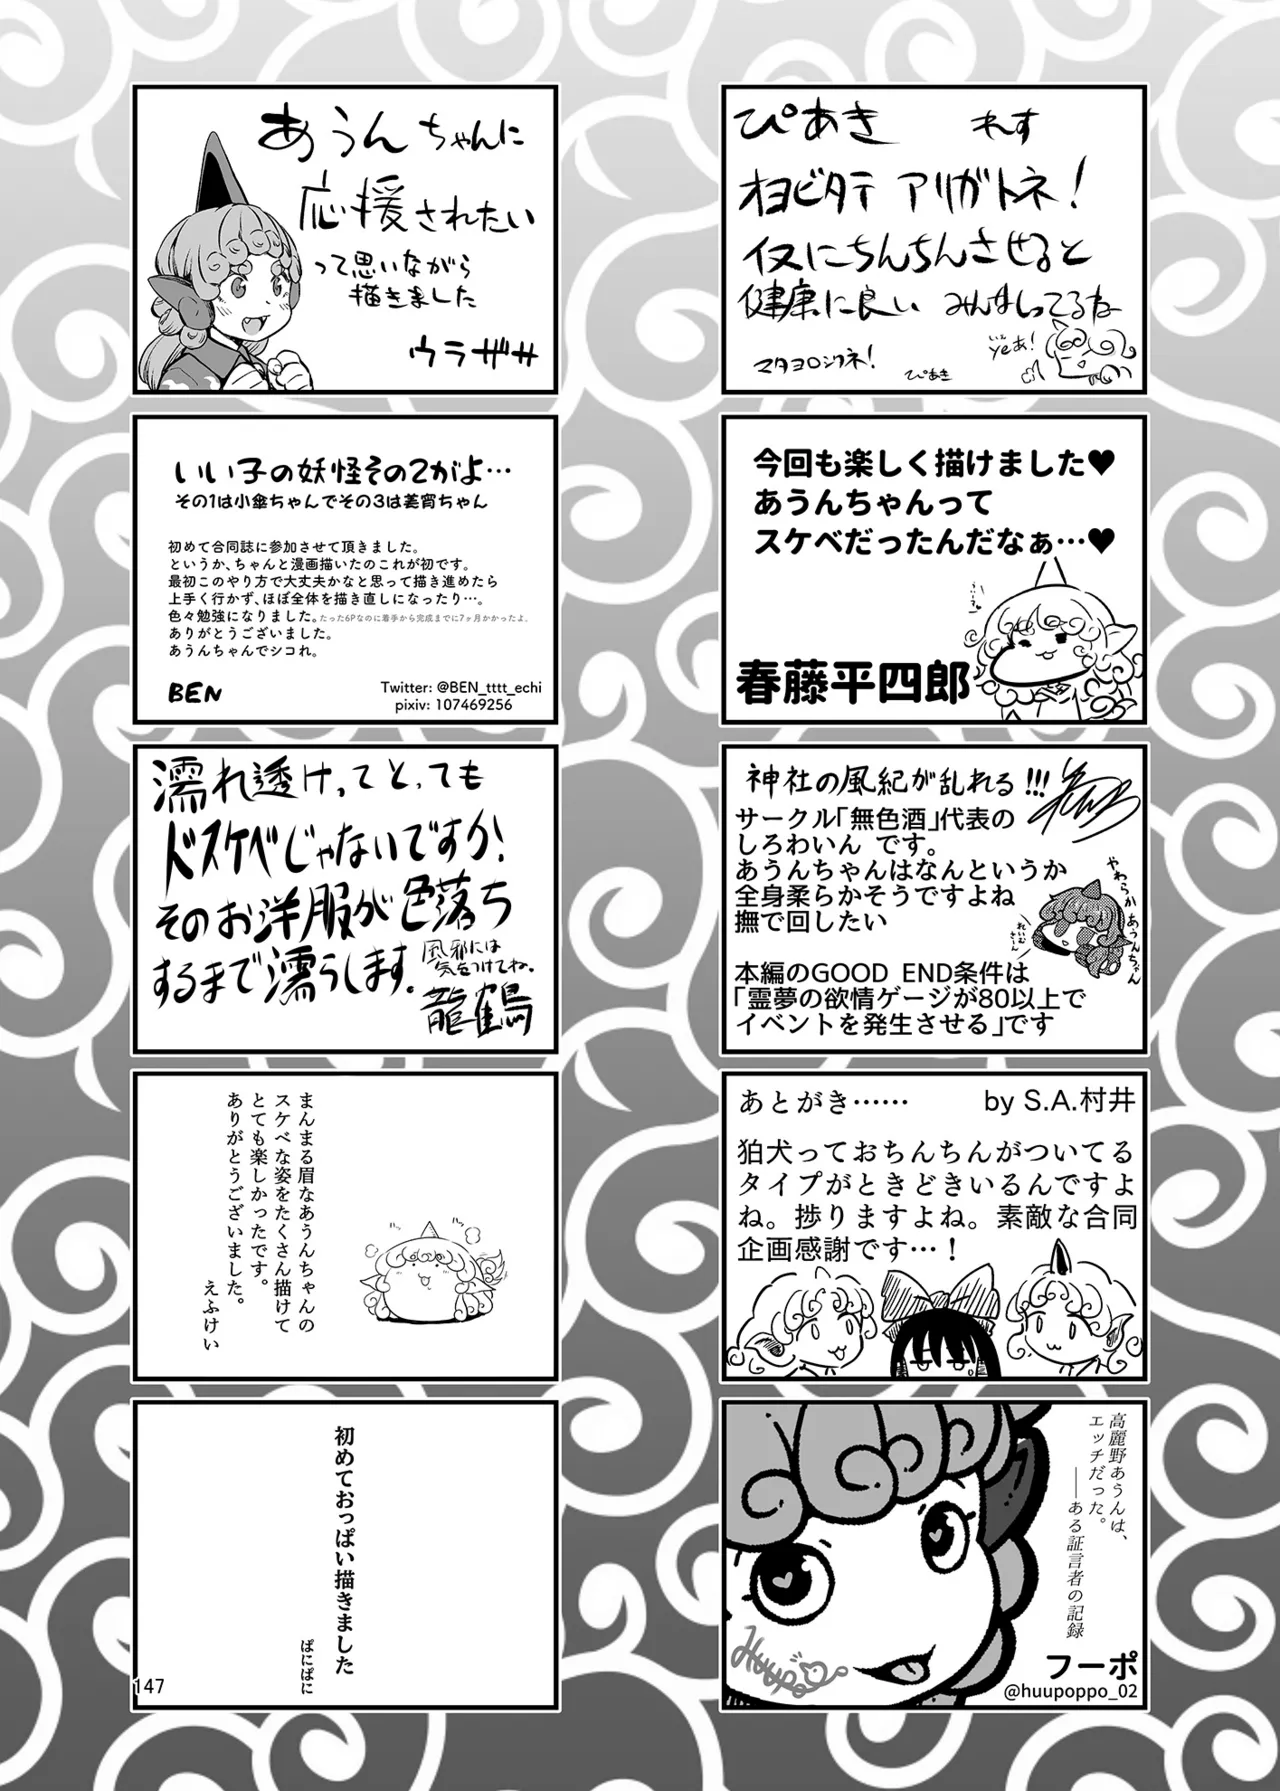 ぴあき れす
オヨビタテ アリガトネ!
イヌにちんちんさせると
健康に良い みんなしってるな
いぇ
yeあ!
マタヨロシクネ!
ぴあき
今回も楽しく描けました♥
あうんちゃんって
スケベだったんだなぁ…♥
春藤平四郎
神社の風紀が乱れる!!!
サークル「無色酒」代表の
しろわいん です。
あうんちゃんはなんというか
全身柔らかそうですよね
撫で回したい
やわらかあうんちゃん
本編のGOOD END条件は
「霊夢の欲情ゲージが80以上で
イベントを発生させる」です
あとがき…… by S.A.村井
狛犬っておちんちんがついてる
タイプがときどきいるんですよ
ね。捗りますよね。素敵な合同
企画感謝です…!
高麗野あうんは、
エッチだった。
――ある証言者の記録
Huupo
フーポ
@huupoppo_02
あうんちゃんに
応援されたい
って思いながら
描きました
ウラザサ
いい子の妖怪その2がよ…
その1は小傘ちゃんでその3は美宵ちゃん
初めて合同誌に参加させて頂きました。
というか、ちゃんと漫画描いたのこれが初です。
最初このやり方で大丈夫かなと思って描き進めたら
上手く行かず、ほぼ全体を描き直しになったり…。
色々勉強になりました。たった6Pなのに着手から完成までに7ヶ月かかったよ、
ありがとうございました。
あうんちゃんでシコれ。
BEN
Twitter: @BEN_tttt_echi
pixiv: 107469256
濡れ透けってとっても
ドスケベじゃないですか!
そのお洋服が色落ち
するまで濡らします。
風邪には
気をつけてね。
龍鶴
まんまる眉なあうんちゃんの
スケベな姿をたくさん描けて
とても楽しかったです。
ありがとうございました。
えふけい
初めておっぱい描きました
ぱにぱに
147